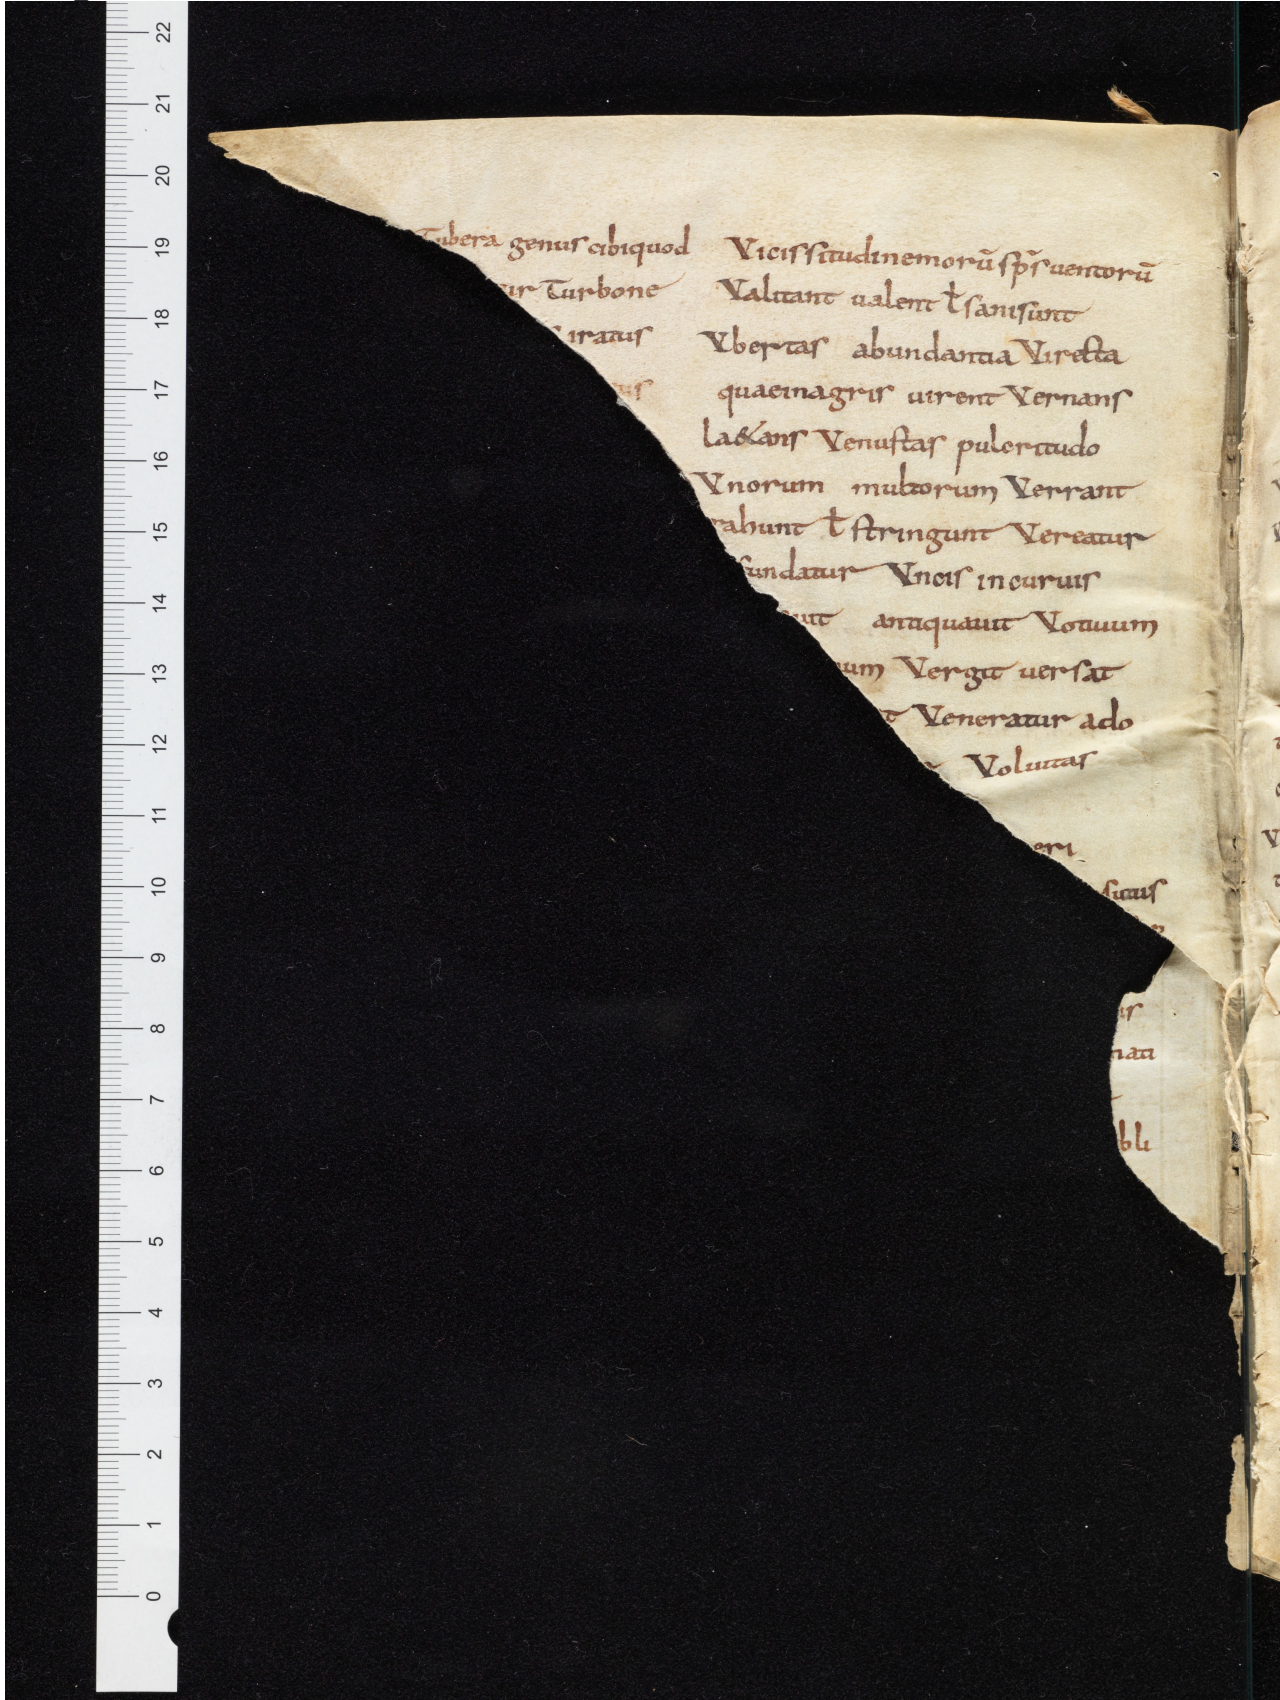 Tubera genus cibiquod
ur Turbone
iratus
Vicissitudinemorū sp̄s uentorū
Valitant ualent ł sani sunt
Vbertas abundantia Virecta
quaeinagris uirent Vernans
Venustas pulcritudo
Vnorum multorum Verrant
rahunt ł stringunt Vereatur
fundatur Vncis incuruis
uit antiquauit Votiuum
um Vergit uersat
t Veneratur ado
Voluitas
eri
situs
ur
nati
bli